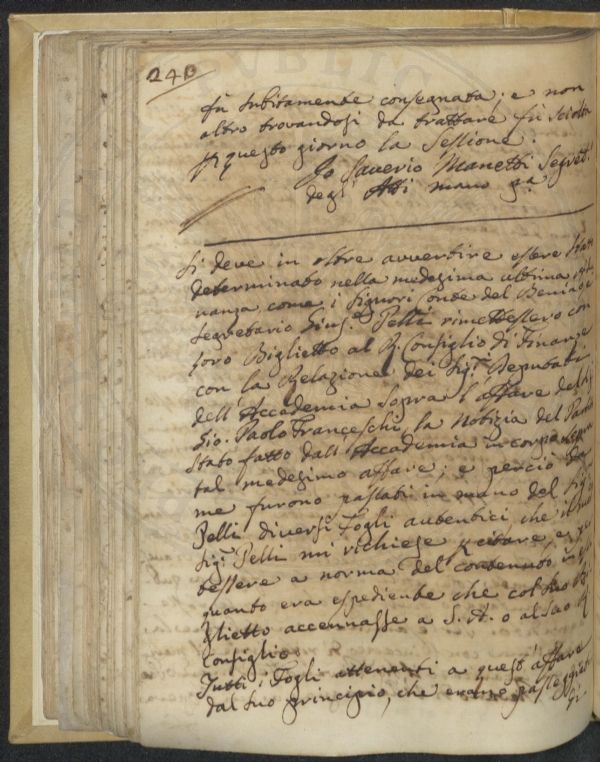 240
fù subitamente consegnata; e non
altro trovandosi da trattare fù sciolta
p questo giorno la Sessione.
Io Saverio Manetti Segret.
degl' Atti mano pa
Si deve in oltre avvertire essere stato
determinato nella medesima ultima
nanza come i Signori Conte del Benin
Segretario Gius.e Pelli rimettessero con
loro Biglietto al R. Consiglio di Finanze
con la Relazione dei Sig.ri Deputati
dell' Accademia sopra l'affare del
Gio. Paolo Franceschi, la Notizia del
stato fatto dall' Accademia in
tal medesimo affare; e perciò da
me furono passati in mano del Sig.
Pelli diversi Fogli autentici, che il
Sig. Pelli mi richiese p citare, e
tessere a norma del contenuto in
quanto era espediente che col suo Bi
glietto accennasse a S. A. o al suo
Consiglio.
Tutti i Fogli attenenti a quest' affare
dal suo principio, che erano